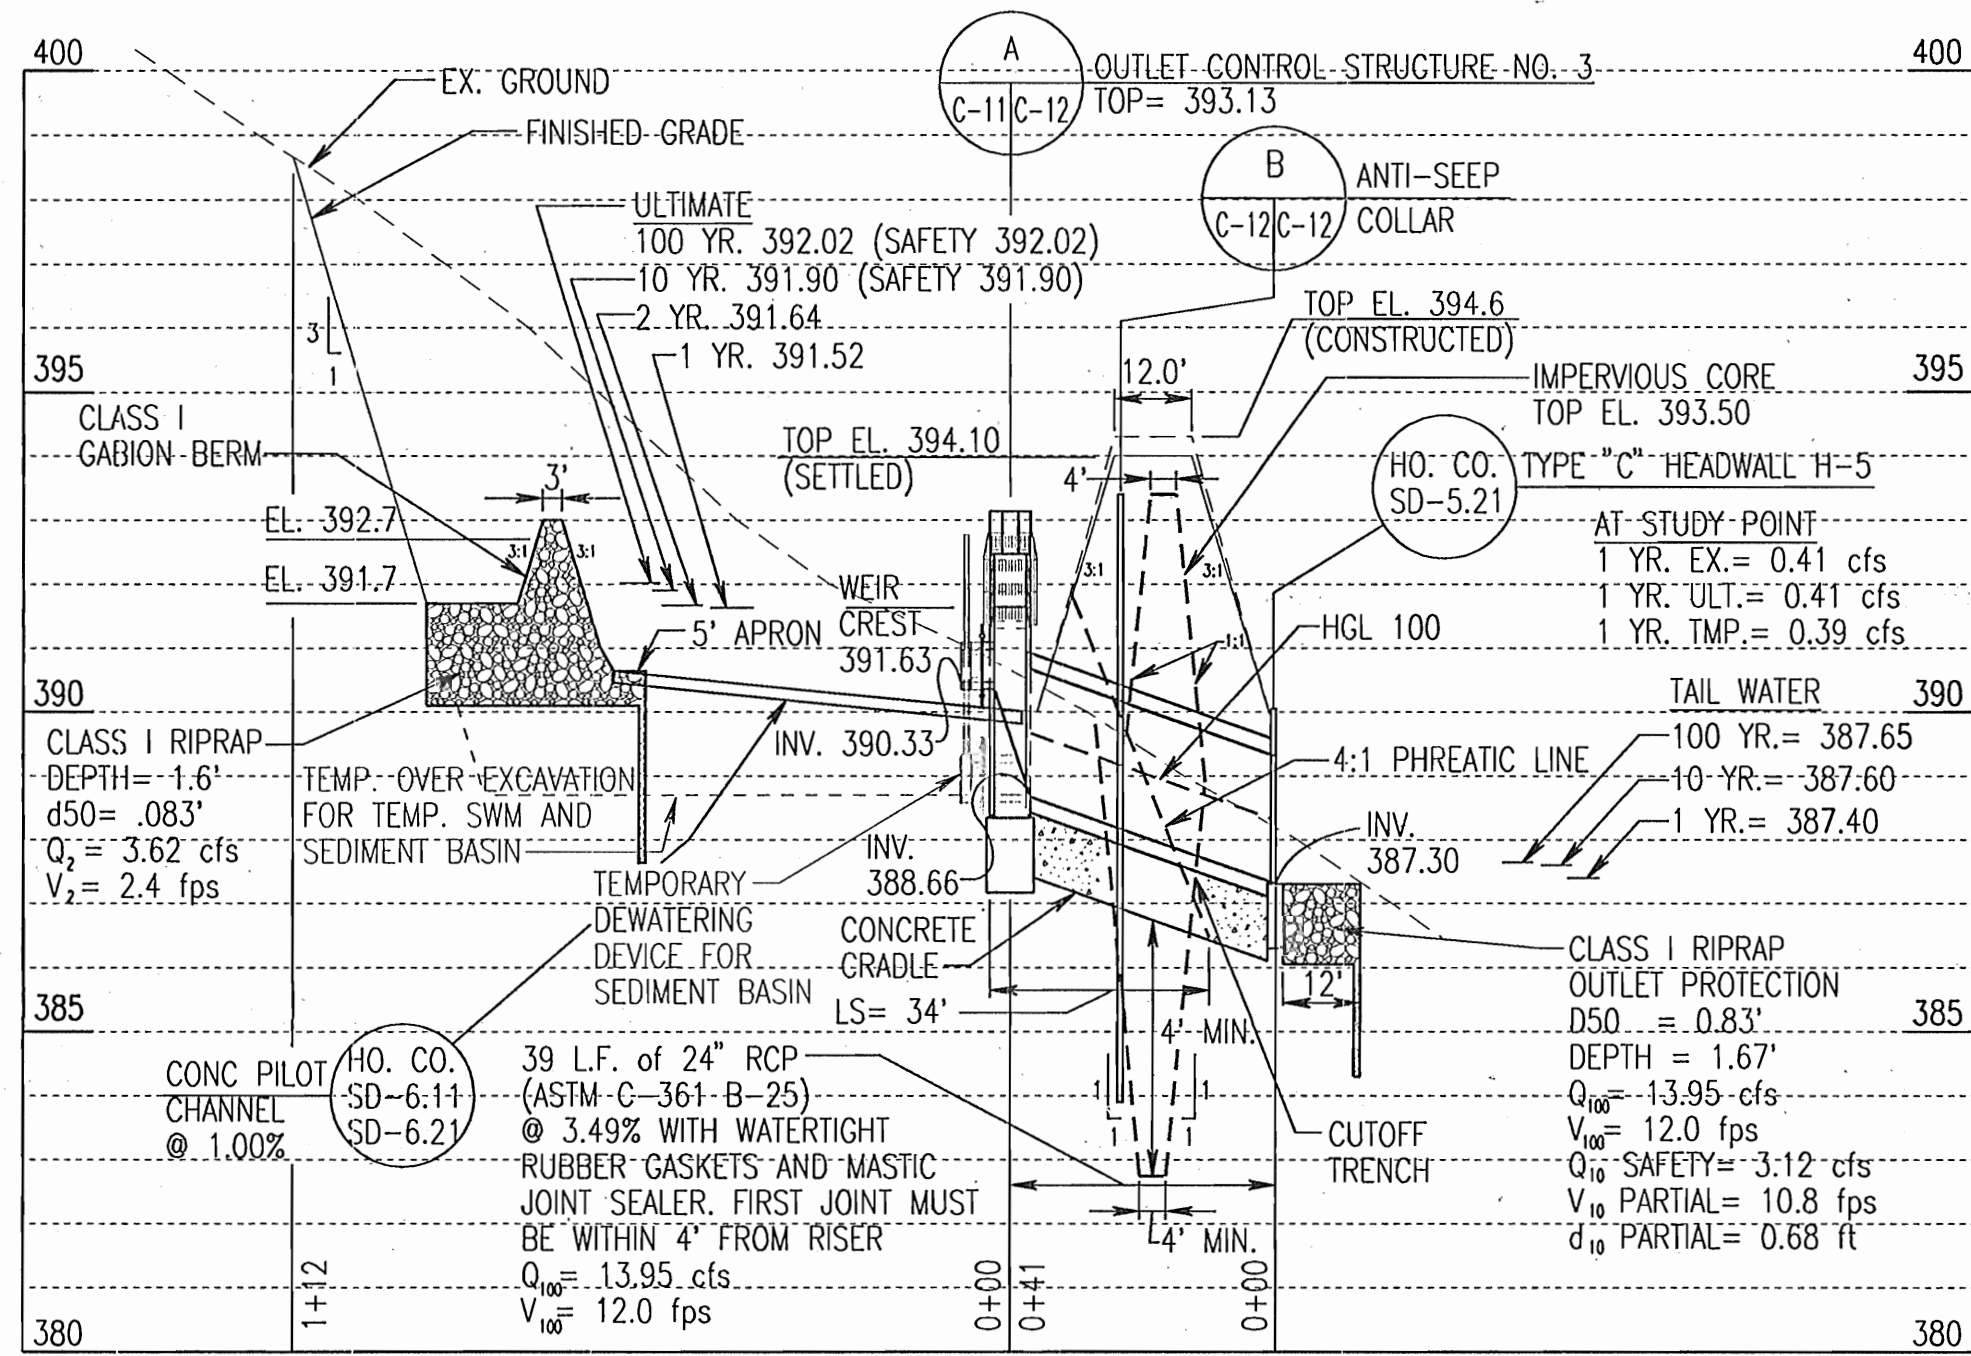 400
400
EX. GROUND
FINISHED GRADE
A
C-11 C-12
OUTLET CONTROL STRUCTURE NO. 3
TOP= 393.13
B
C-12 C-12
ANTI-SEEP
COLLAR
ULTIMATE
100 YR. 392.02 (SAFETY 392.02)
10 YR. 391.90 (SAFETY 391.90)
2 YR. 391.64
1 YR. 391.52
3
1
395
395
TOP EL. 394.6
(CONSTRUCTED)
12.0'
IMPERVIOUS CORE
TOP EL. 393.50
CLASS I
GABION BERM
3'
TOP EL. 394.10
(SETTLED)
4'
HO. CO.
SD-5.21
TYPE "C" HEADWALL H-5
EL. 392.7
3:1
3:1
EL. 391.7
3:1
3:1
AT STUDY POINT
1 YR. EX.= 0.41 cfs
1 YR. ULT.= 0.41 cfs
1 YR. TMP.= 0.39 cfs
WEIR
CREST
391.63
5' APRON
HGL 100
1:1
390
390
TAIL WATER
100 YR.= 387.65
10 YR.= 387.60
1 YR.= 387.40
CLASS I RIPRAP
DEPTH= 1.6'
d50= .083'
Q2= 3.62 cfs
V2= 2.4 fps
INV. 390.33
TEMP. OVER EXCAVATION
FOR TEMP. SWM AND
SEDIMENT BASIN
4:1 PHREATIC LINE
INV.
387.30
INV.
388.66
TEMPORARY
DEWATERING
DEVICE FOR
SEDIMENT BASIN
CONCRETE
CRADLE
LS= 34'
12'
CLASS I RIPRAP
OUTLET PROTECTION
D50 = 0.83'
DEPTH = 1.67'
Q100= 13.95 cfs
V100= 12.0 fps
Q10 SAFETY= 3.12 cfs
V10 PARTIAL= 10.8 fps
d10 PARTIAL= 0.68 ft
385
385
4' MIN.
CONC PILOT
CHANNEL
@ 1.00%
HO. CO.
SD-6.11
SD-6.21
39 L.F. of 24" RCP
(ASTM C-361 B-25)
@ 3.49% WITH WATERTIGHT
RUBBER GASKETS AND MASTIC
JOINT SEALER. FIRST JOINT MUST
BE WITHIN 4' FROM RISER
Q100= 13.95 cfs
V100= 12.0 fps
1
1
1
1
CUTOFF
TRENCH
4' MIN.
1+12
0+00
0+41
0+00
380
380